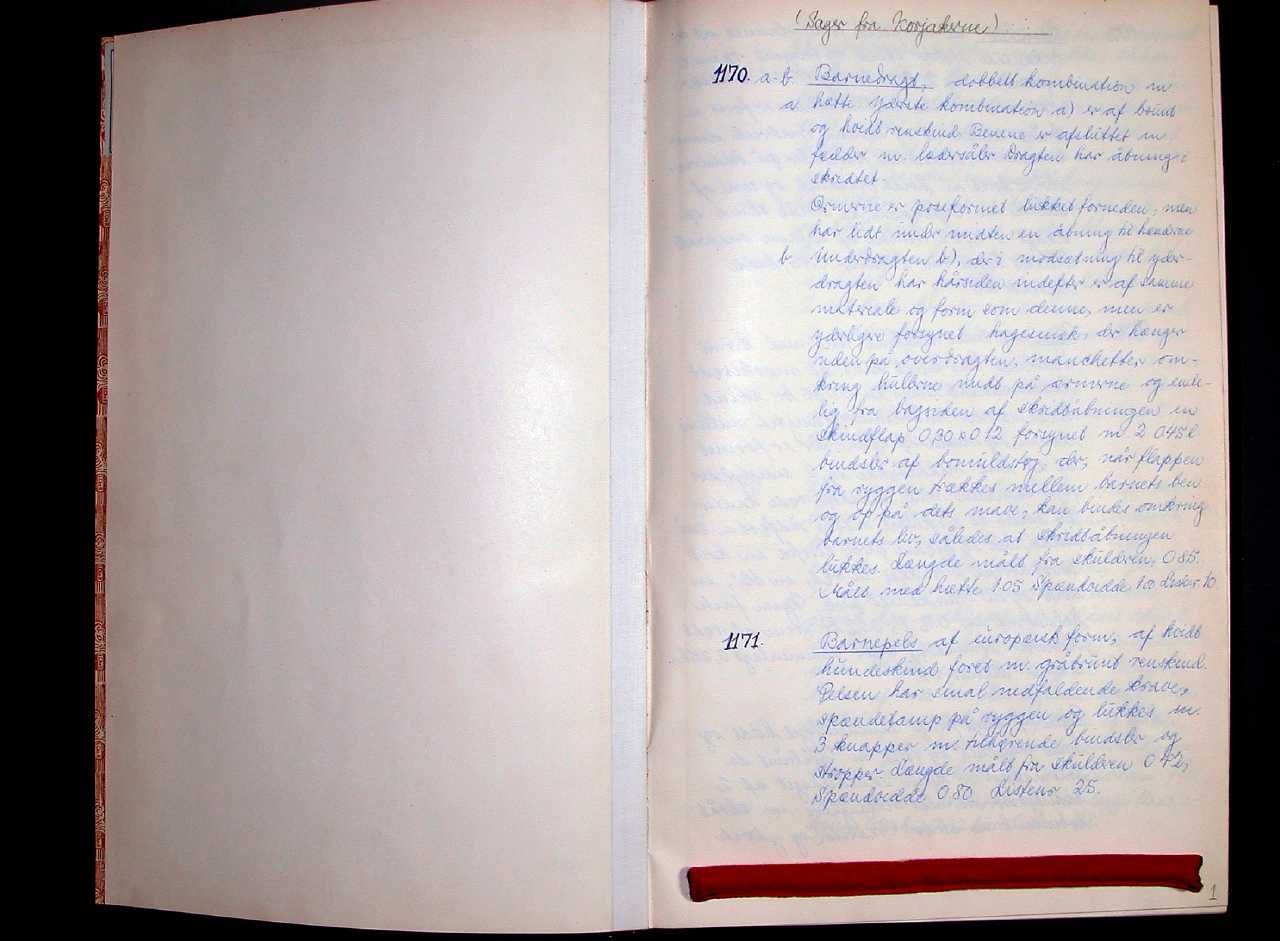 (Sager fra Korjakerne)
1170. a-b. Barnedragt, dobbelt kombination m
a hætte Yderste kombination a) er af brunt
og hvidt renskind Benene er afsluttet m
fødder m. lædersåler Dragten har åbning i
skridtet.
Ærmerne er præformet lukket forneden, men
har lidt under midten en åbning til hænderne
b Underdragten b), der i modsætning til yder-
dragten har hårsiden indefter er af samme
materiale og form som denne, men er
yderligere forsynet hagesmæk, der hænger
uden på overdragten, manchetter om-
kring hullerne midt på ærmerne og ende-
lig fra bagsiden af skridtåbningen en
skindflap 0,30 x 0,12 forsynet m 2 0,45 l
bindsler af bomuldstøj, der, når flappen
fra ryggen trækkes mellem barnets ben
og op på dets mave, kan bindes omkring
barnets liv, således at skridtåbningen
lukkes. Længde målt fra skuldren, 0.85.
Målt med hætte 1.05 Spændvidde 1.00 Listenr. 10.
1171. Barnepels af europæisk form, af hvidt
hundeskind foret m. gråbrunt renskind.
Pelsen har smal nedfaldende krave,
spændetamp på ryggen og lukkes m.
3 knapper m. tilhørende bindsler og
stropper. Længde målt fra skuldren 0.42,
Spændvidde 0.80 Listenr. 25.
1